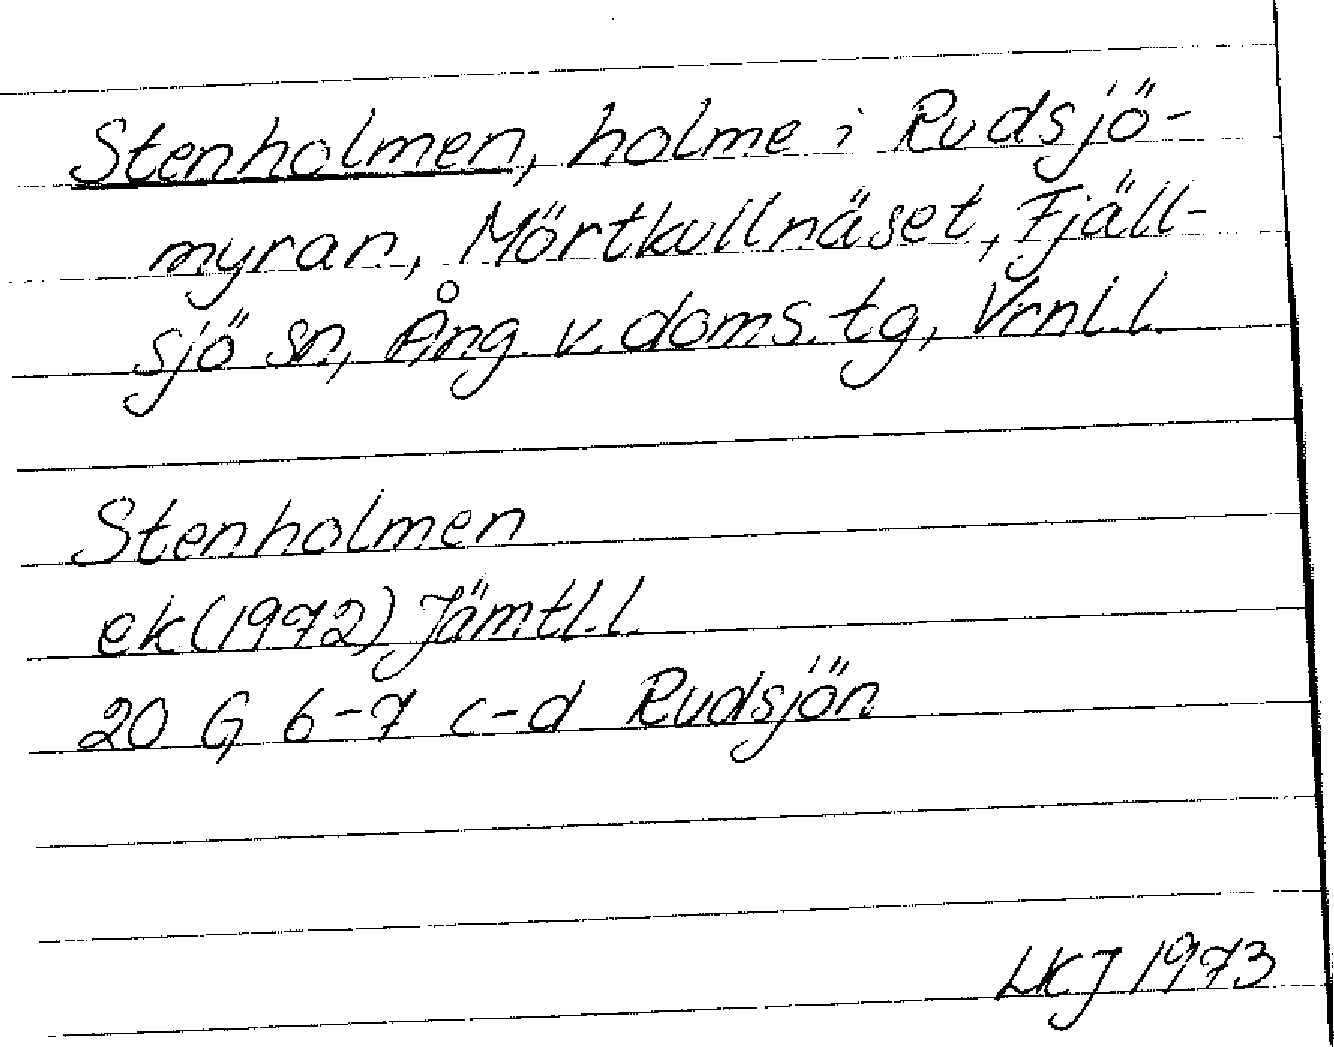 Stenholmen, holme i Rudsjö-
myran, Mörtkullnäset, Fjäll-
sjö sn, Ång. v. doms. tg, Vrnl.l.
Stenholmen
ek(1972) Jämtl.l.
20 G 6-7 c-d Rudsjön
LKJ 1973